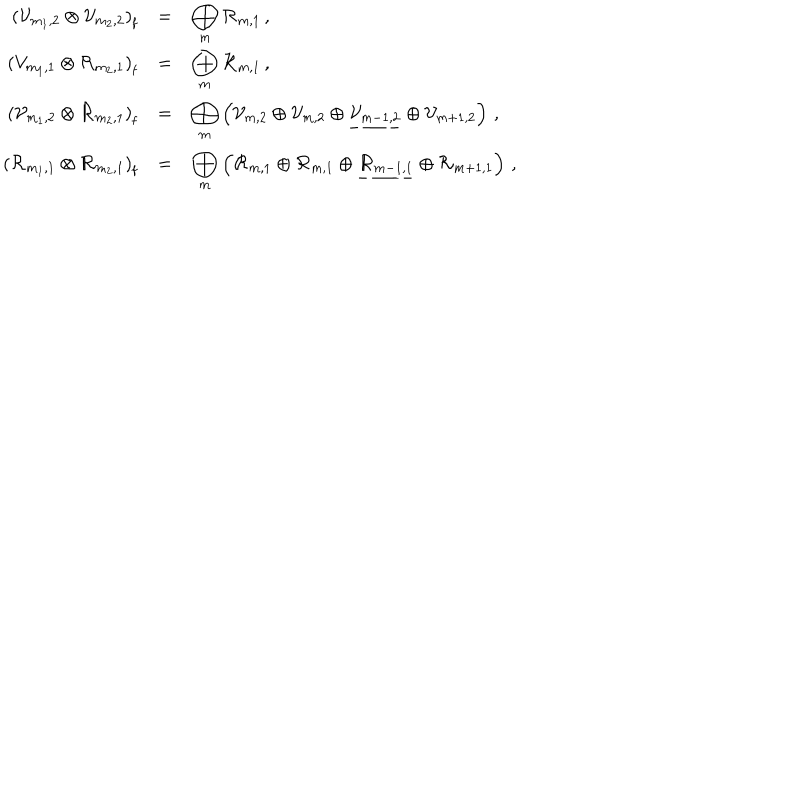 (𝒱_{m_1,2} ⊗ 𝒱_{m_2,2})_f = ⨁_m ℛ_{m,1} ,
(𝒱_{m_1,1} ⊗ ℛ_{m_2,1})_f = ⨁_m ℛ_{m,1} ,
(𝒱_{m_1,2} ⊗ ℛ_{m_2,1})_f = ⨁_m (𝒱_{m,2} ⊕ 𝒱_{m,2} ⊕ \underline{𝒱_{m−1,2}} ⊕ 𝒱_{m+1,2}) ,
(ℛ_{m_1,1} ⊗ ℛ_{m_2,1})_f = ⨁_m (ℛ_{m,1} ⊕ ℛ_{m,1} ⊕ \underline{ℛ_{m−1,1}} ⊕ ℛ_{m+1,1}) ,